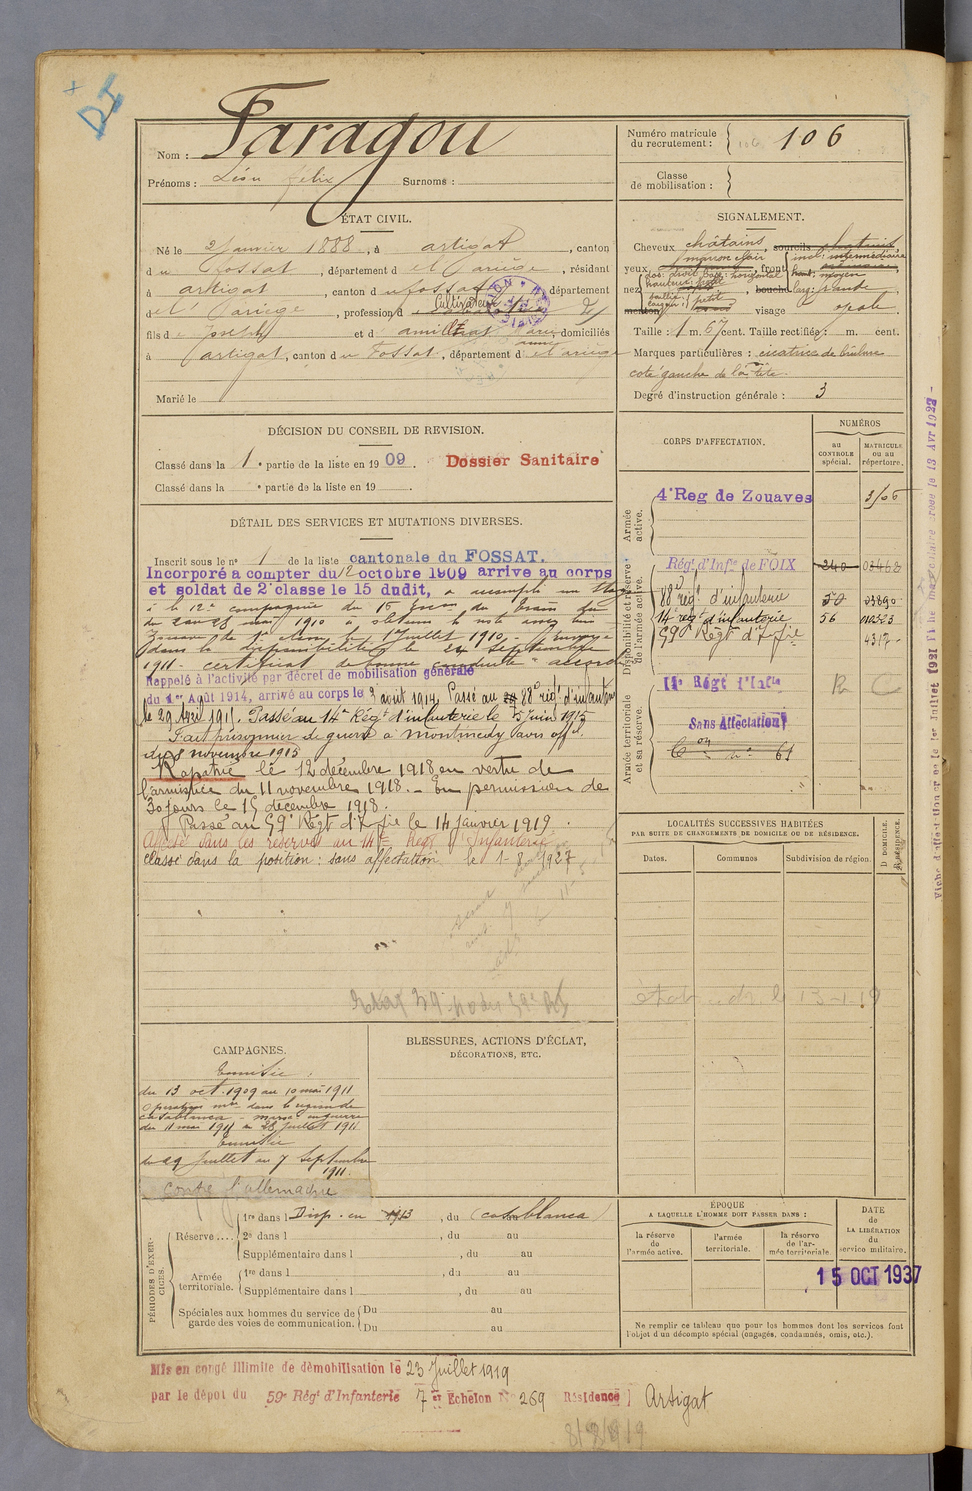 DI
Nom : Faragou
Prénoms : Léon felix Surnoms :
Numéro matricule du recrutement : 106
Classe de mobilisation :
ÉTAT CIVIL.
Né le 2 Janvier 1888, à artigat, canton
du fossat, département d el ariège, résidant
à artigat, canton du fossat, département
del ariège, profession d cultivateur
fils de Joseph et d domiciliés
à artigat, canton du fossat, département d el ariège
Marié le
SIGNALEMENT.
Cheveux châtains, sourcils châtains,
yeux marron clair, front incl: intermédiaire
haut: moyen
nez dos: droit base: horizontal
hauteur: petite
saillie: petite
bouche larg:
menton visage ovale
Taille : 1 m. 67 cent. Taille rectifiée : m. cent.
Marques particulières : cicatrice de brûlure
coté gauche de la tête.
Degré d'instruction générale : 3
DÉCISION DU CONSEIL DE REVISION.
Classé dans la 1e partie de la liste en 1909. Dossier Sanitaire
Classé dans la e partie de la liste en 19
DÉTAIL DES SERVICES ET MUTATIONS DIVERSES.
Inscrit sous le n° 1 de la liste cantonale du FOSSAT.
Incorporé a compter du 12 octobre 1909 arrive au corps
et soldat de 2e classe le 15 dudit, a accompli un stage
à la 12e compagnie du 15 du train du
du 28 mai 1910 a obtenu la note assez bien
Zouave de 1e classe le 1er Juillet 1910. - Envoyé
dans la disponibilité le 24 Septembre
1911. certificat de bonne conduite "accordé"
Rappelé à l'activité par décret de mobilisation générale
du 1er Août 1914, arrivé au corps le 3 août 1914. Passé au 88e régt d'infanterie
le 29 Avril 1915. Passé au 14e Régt d'infanterie le 5 Juin 1915
Fait prisonnier de guerre à montmedy avis offel.
du 8 novembre 1915
Rapatrié le 12 décembre 1918 en vertu de
l'armistice du 11 novembre 1918. - En permission de
30 jours le 15 décembre 1918.
Passé au 59e Régt d'Inf'ie le 14 janvier 1919.
Affecté dans les réserves au 14e Régt d'Infanterie
Classé dans la position : sans affectation le 1-8-1927
CORPS D'AFFECTATION.
NUMÉROS
au CONTROLE spécial.
MATRICULE ou au répertoire.
Armée active.
4e Reg de Zouaves 3106
Disponibilité et réserve de l'armée active.
Régt. d'Infie de FOIX 240 03462
88e régt d'infanterie 50 03890
14e régt d'infanterie 56 010323
59e Régt d'Inf'ie 4312
Armée territoriale et sa réserve.
14e Régt d'Infie
Sans Affectation
Con n° 61
Fiche d'affectation créée le 1er Juillet 1921 Fiche matriculaire créée le 13 Avr 1922 -
LOCALITÉS SUCCESSIVES HABITÉES
PAR SUITE DE CHANGEMENTS DE DOMICILE OU DE RÉSIDENCE.
Dates. Communes Subdivision de région. D DOMICILE. R RÉSIDENCE.
13-1-19
CAMPAGNES.
Tunisie :
du 13 oct. 1909 au 10 mai 1911
Opérations mres dans la région de
Casablanca - Maroc en guerre
du 11 mai 1911 au 28 juillet 1911
Tunisie
du 29 Juillet au 7 Septembre
1911.
Contre l'allemagne
BLESSURES, ACTIONS D'ÉCLAT,
DÉCORATIONS, ETC.
PÉRIODES D'EXERCICES.
Réserve....
1re dans l Disp. en 1913, du (casablanca)
2e dans l , du au
Supplémentaire dans l , du au
Armée territoriale.
1re dans l , du au
Supplémentaire dans l , du au
Spéciales aux hommes du service de garde des voies de communication.
Du au
Du au
ÉPOQUE
A LAQUELLE L'HOMME DOIT PASSER DANS :
la réserve de l'armée active.
l'armée territoriale.
la réserve de l'armée territoriale
DATE de LA LIBÉRATION du service militaire.
15 OCT 1937
Ne remplir ce tableau que pour les hommes dont les services font
l'objet d'un décompte spécial (engagés, condamnés, omis, etc.).
Mis en congé illimité de démobilisation le 23 Juillet 1919
par le dépôt du 59e Régt d'Infanterie 7e Echelon N° 269 Résidence ] Artigat